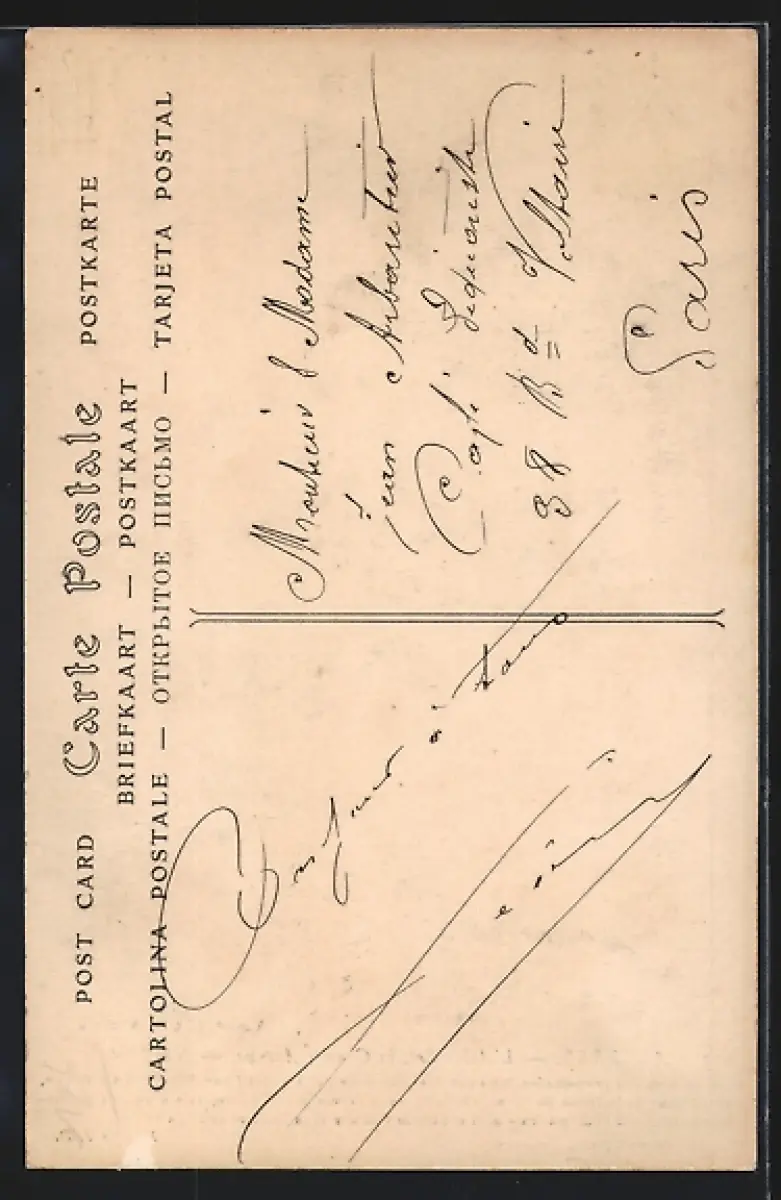 POST CARD Carte Postale POSTKARTE
BRIEFKAART — POSTKAART
CARTOLINA POSTALE — ОТКРЫТОЕ ПИСЬМО — TARJETA POSTAL
Bonjour à tous
Monsieur & Madame
Jean
Café
38 Bd Voltaire
Paris